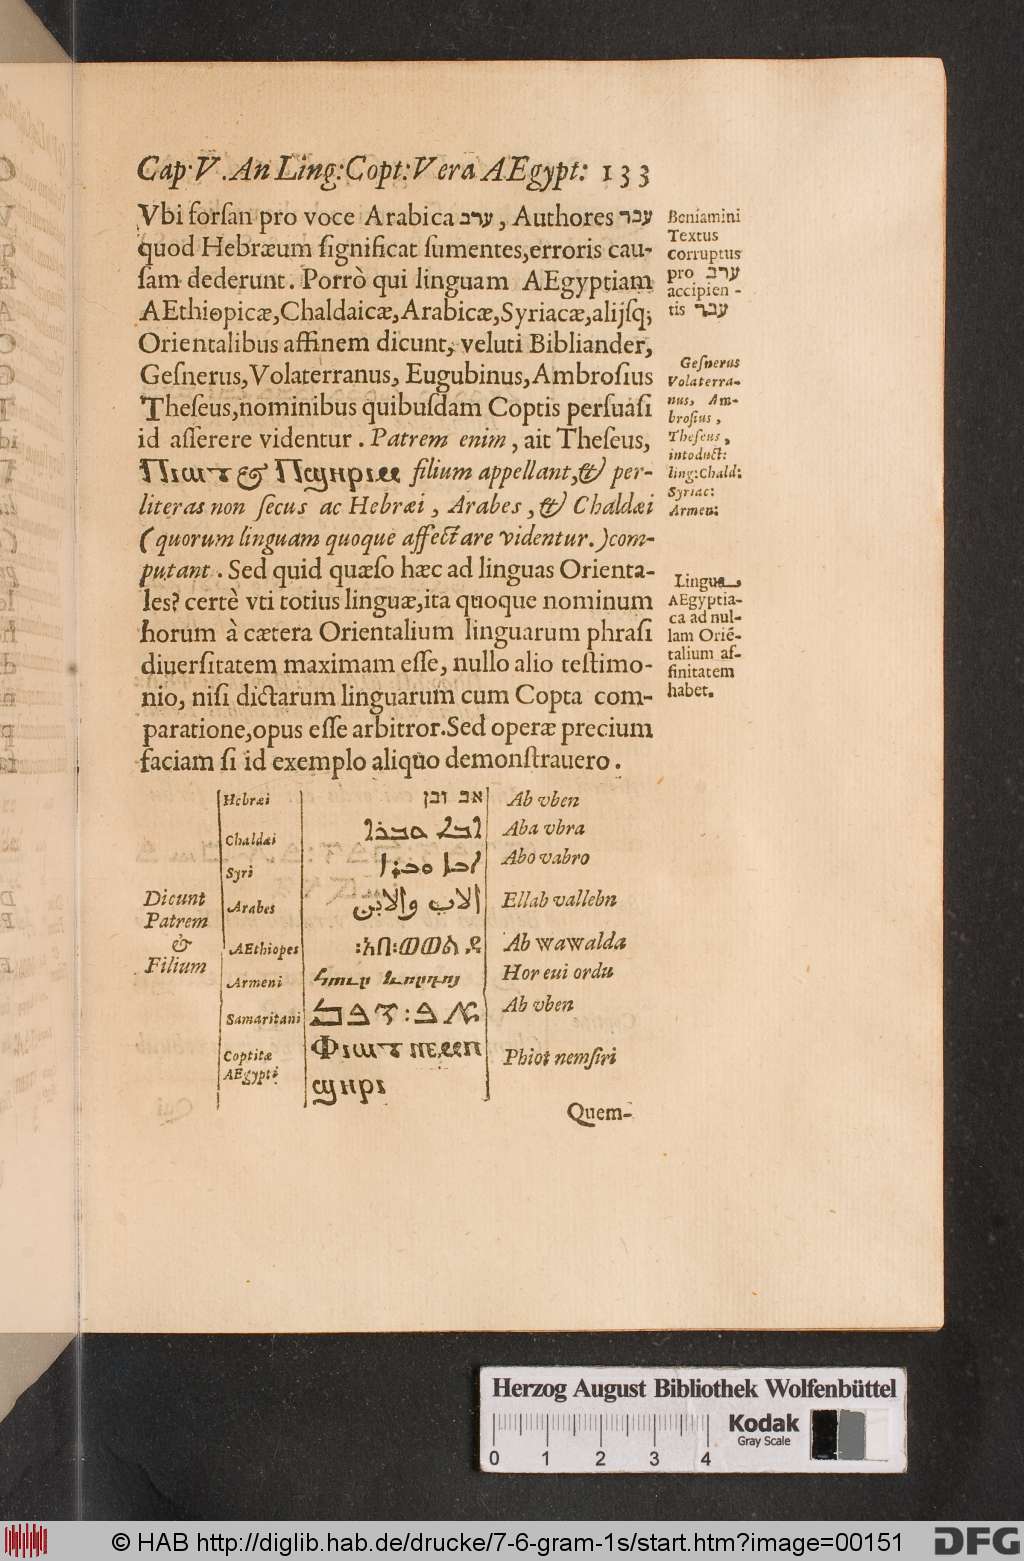 Cap. V. An Ling: Copt: Vera AEgypt: 133
Vbi forsan pro voce Arabica ערב, Authores עבר
quod Hebræum significat sumentes, erroris cau-
sam dederunt. Porrò qui linguam AEgyptiam
AEthiopicæ, Chaldaicæ, Arabicæ, Syriacæ, alijsq;
Orientalibus affinem dicunt, veluti Bibliander,
Gesnerus, Volaterranus, Eugubinus, Ambrosius
Theseus, nominibus quibusdam Coptis persuasi
id asserere videntur. Patrem enim, ait Theseus,
Ⲡⲓⲱⲧ & Ⲡϣⲏⲣⲓ filium appellant, & per-
literas non secus ac Hebræi, Arabes, & Chaldæi
(quorum linguam quoque affectare videntur.) com-
putant. Sed quid quæso hæc ad linguas Orienta-
les? certè vti totius linguæ, ita quoque nominum
horum à cætera Orientalium linguarum phrasi
diuersitatem maximam esse, nullo alio testimo-
nio, nisi dictarum linguarum cum Copta com-
paratione, opus esse arbitror. Sed operæ precium
faciam si id exemplo aliquo demonstrauero.
Beniamini
Textus
corruptus
pro ערב
accipien-
tis עבר
Gesnerus
Volaterra-
nus, Am-
brosius,
Theseus,
intoduct:
ling: Chald:
Syriac:
Armen:
Lingua
AEgyptia-
ca ad nul-
lam Oriē-
talium af-
finitatem
habet.
Dicunt
Patrem
&
Filium
Hebræi אב ובן Ab vben
Chaldæi ܐܒܐ ܘܒܪܐ Aba vbra
Syri ܐܒܐ ܘܒܪܐ Abo vabro
Arabes الاب والابن Ellab vallebn
AEthiopes ፡አብ፡ወወልዴ Ab wawalda
Armeni Հոur Hor eui ordu
Samaritani ࠀࠁ : ࠅࠁࠍ Ab vben
Coptitæ Ⲫⲓⲱⲧ ⲛⲉⲙⲡ Phiot nemsiri
AEgypti ϣⲏⲣⲓ
Quem-
Herzog August Bibliothek Wolfenbüttel
Kodak
Gray Scale
0 1 2 3 4
© HAB http://diglib.hab.de/drucke/7-6-gram-1s/start.htm?image=00151
DFG